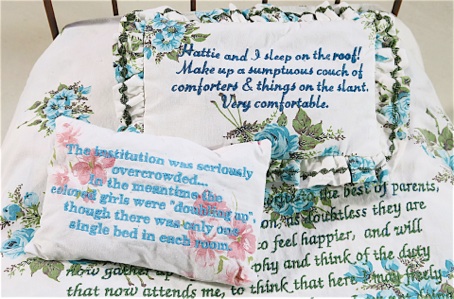 Hattie and I sleep on the roof!
Make up a sumptuous couch of
comforters & things on the slant.
Very comfortable.
The institution was seriously
overcrowded...
In the meantime the
colored girls were "doubling up",
though there was only one
single bed in each room.
the best of parents,
as doubtless they are
to feel happier, and will
Now gather up
and think of the duty
that now attends me, to think that here I may freely